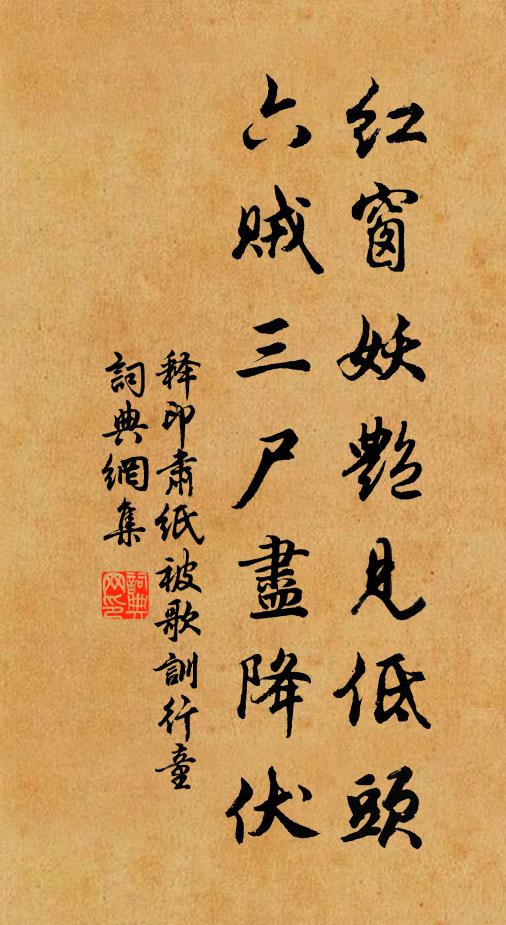 紅窗妖艷見低頭
六賊三尸盡降伏
释印肅紙被歌訓行童
詞典網集
詞典网印